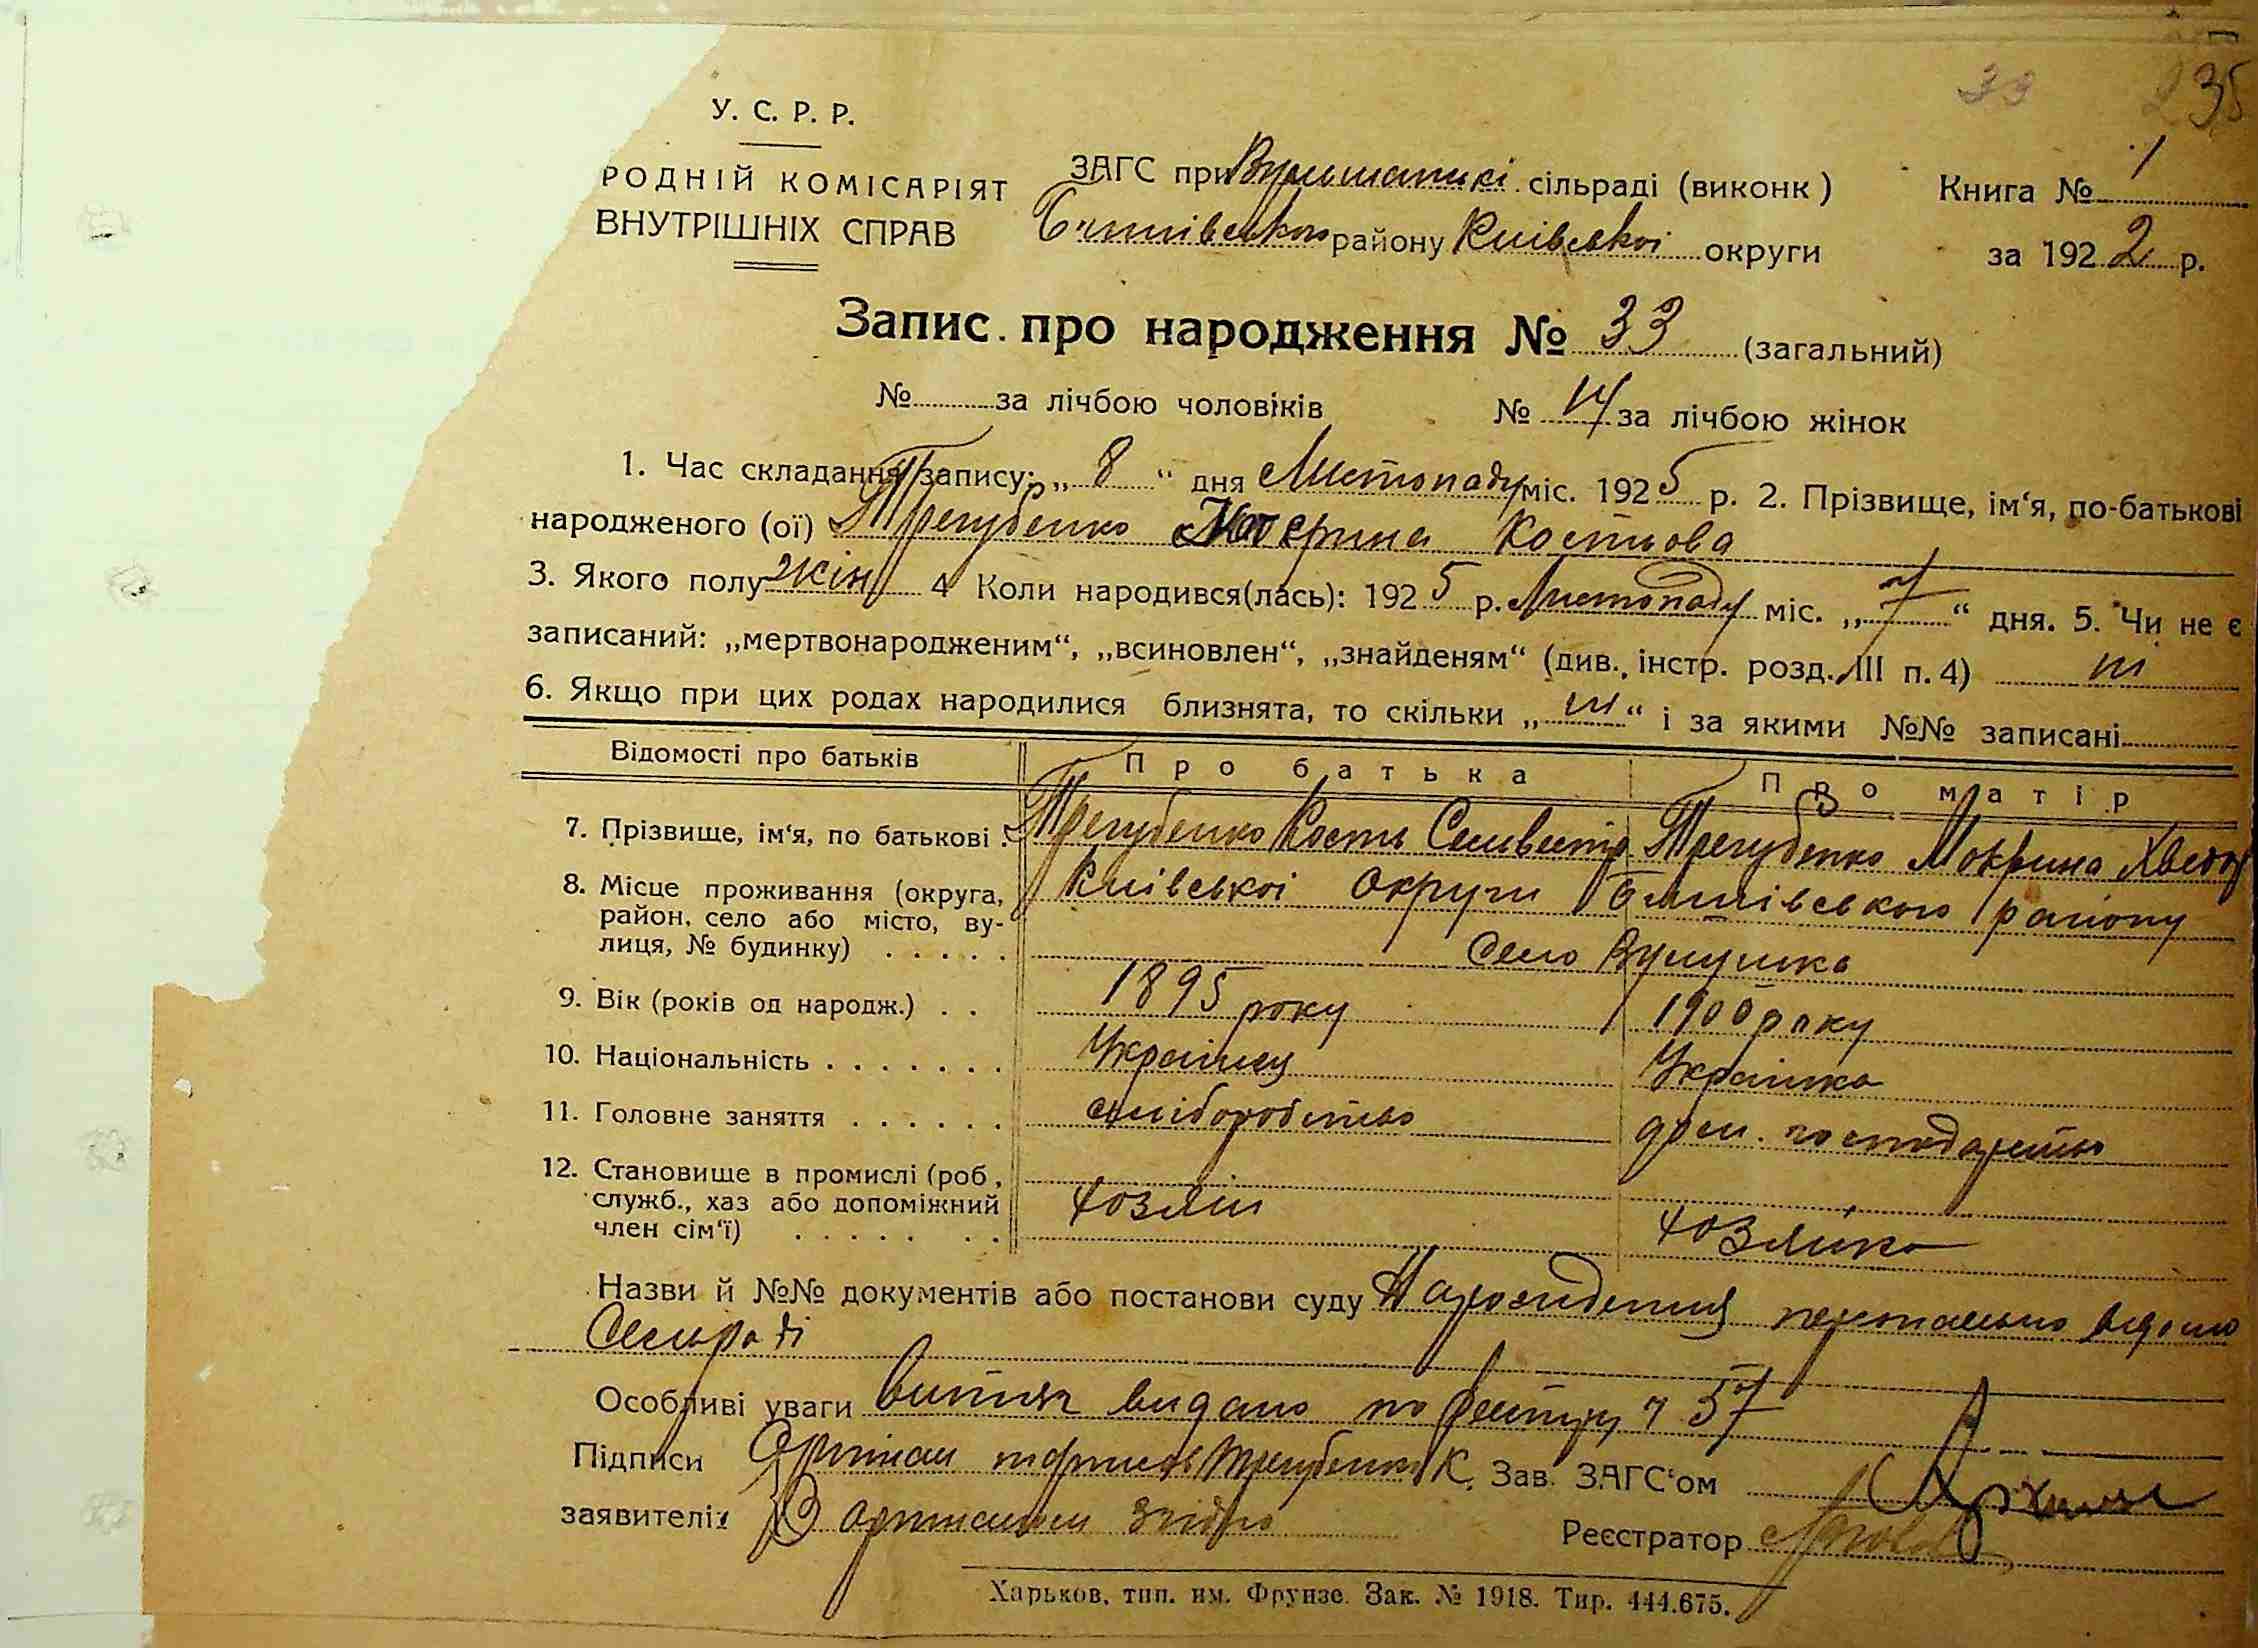 33 235
У. С. Р. Р.
РОДНІЙ КОМІСАРІЯТ
ВНУТРІШНІХ СПРАВ
ЗАГС при сільраді (виконк) Книга № 1
району Київської округи за 192 2 р.
Запис про народження № 33 (загальний)
№ за лічбою чоловіків № 14 за лічбою жінок
1. Час складання запису: „ 8 “ дня Листопаду міс. 192 5 р. 2. Прізвище, ім‘я, по-батькові
народженого (ої) Трегубенко Катерина Костьова
3. Якого полу жін 4 Коли народився(лась): 192 5 р. Листопаду міс. „ 7 “ дня. 5. Чи не є
записаний: „мертвонародженим“, „всиновлен“, „знайденям“ (див. інстр. розд. III п. 4) ні
6. Якщо при цих родах народилися близнята, то скільки „ ні “ і за якими №№ записані
Відомості про батьків Про батька Про матір
7. Прізвище, ім‘я, по батькові: Трегубенко Кость Сельвестр Трегубенко Мокрина Хведор
8. Місце проживання (округа, район, село або місто, вулиця, № будинку) Київської Округи району
Село
9. Вік (років од народж.) 1895 року 1900 року
10. Національність Українец Українка
11. Головне заняття хліборобство дом. господарство
12. Становище в промислі (роб, служб., хаз або допоміжний член сім‘ї) хозяін хозяйка
Назви й №№ документів або постанови суду Народження персонально відомо
Сельраді
Особливі уваги витяг видано по реєстру ч 57
Підписи Оригінал підписав Трегубенко К. Зав. ЗАГС‘ом
заявителів З оригіналом згідно Реєстратор
Харьков, тип. им. Фрунзе. Зак. № 1918. Тир. 444.675.